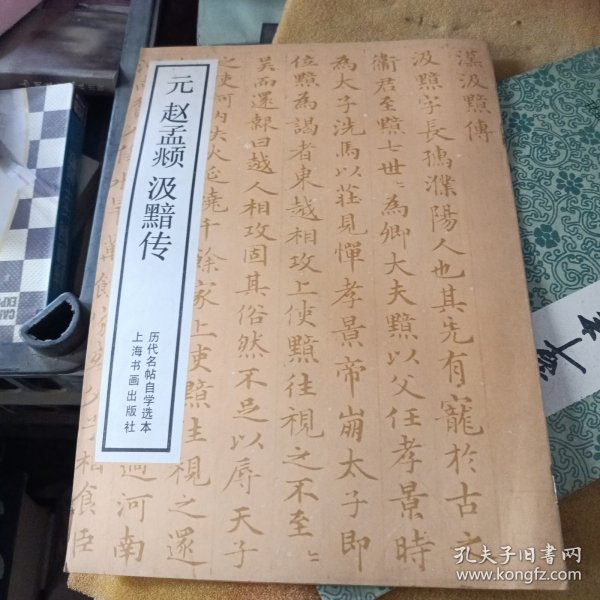 元 赵孟頫 汲黯传
历代名帖自学选本
上海书画出版社
漢汲黯傳
汲黯字長孺濮陽人也其先有寵於古之
衛君至黯七世〻為卿大夫黯以父任孝景時
為太子洗馬以莊見憚孝景帝崩太子即
位黯為謁者東越相攻上使黯往視之不至〻
吳而還報曰越人相攻固其俗然不足以辱天子
之使河內失火延燒千餘家上使黯往視之還
過河南
相食臣
孔夫子旧书网
www.kongfz.com